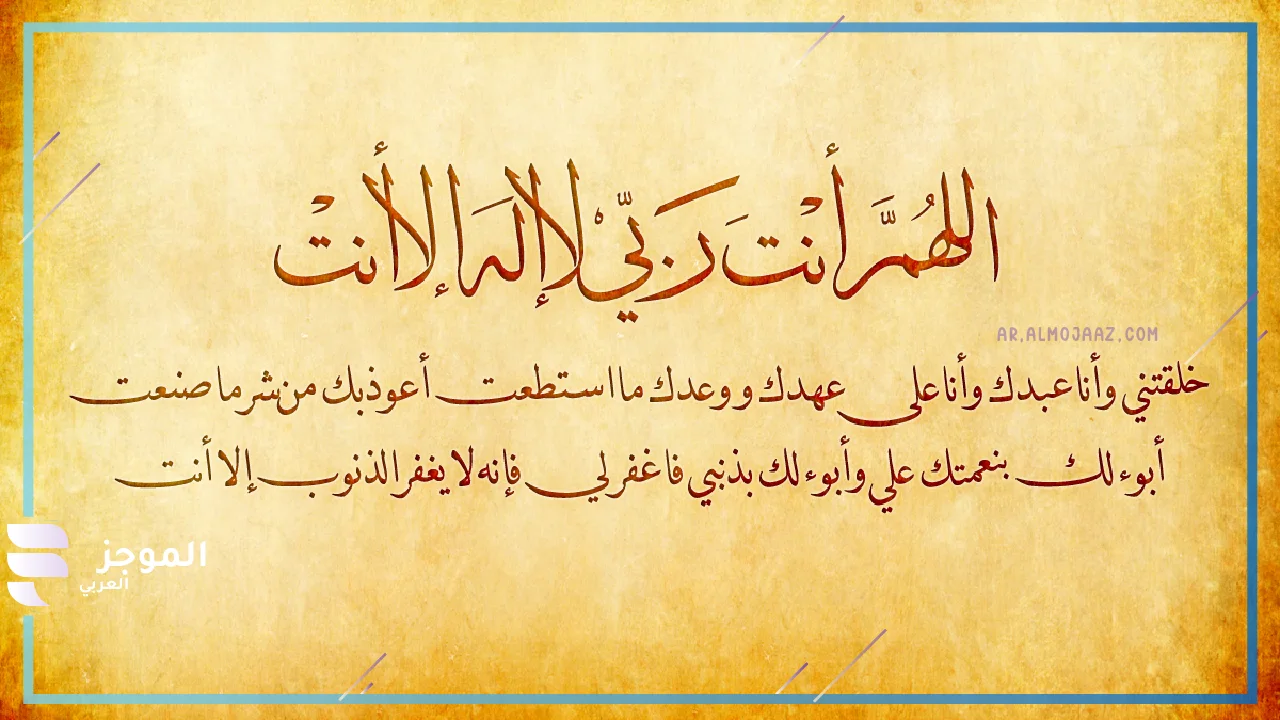 اللهُمَّ أنْتَ رَبّي لا إله إلا أنْت
AR.ALMOJAAZ.COM
خلقتني وأنا عبدك وأنا على عهدك و وعدك ما استطعت أعوذ بك من شر ما صنعت
أبوء لك بنعمتك علي وأبوء لك بذنبي فاغفر لي فإنه لا يغفر الذنوب إلا أنت
الموجز
العربي